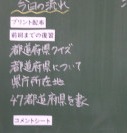 今日の流れ
プリント配布
前回までの復習
都道府県クイズ
都道府県について
県庁所在地
47都道府県を書く
コメントシート